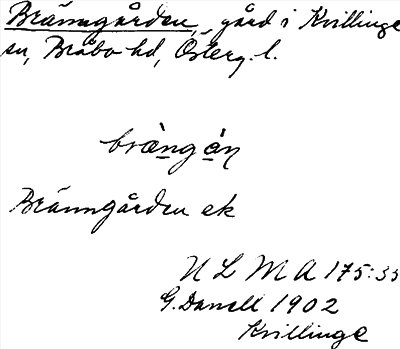 Brännngården, gård i Kvillinge
sn, Bråbo hd, Österg. l.
bràngàn
Brännngården ek
ULMA 175:35
G. Danell 1902
Kvillinge